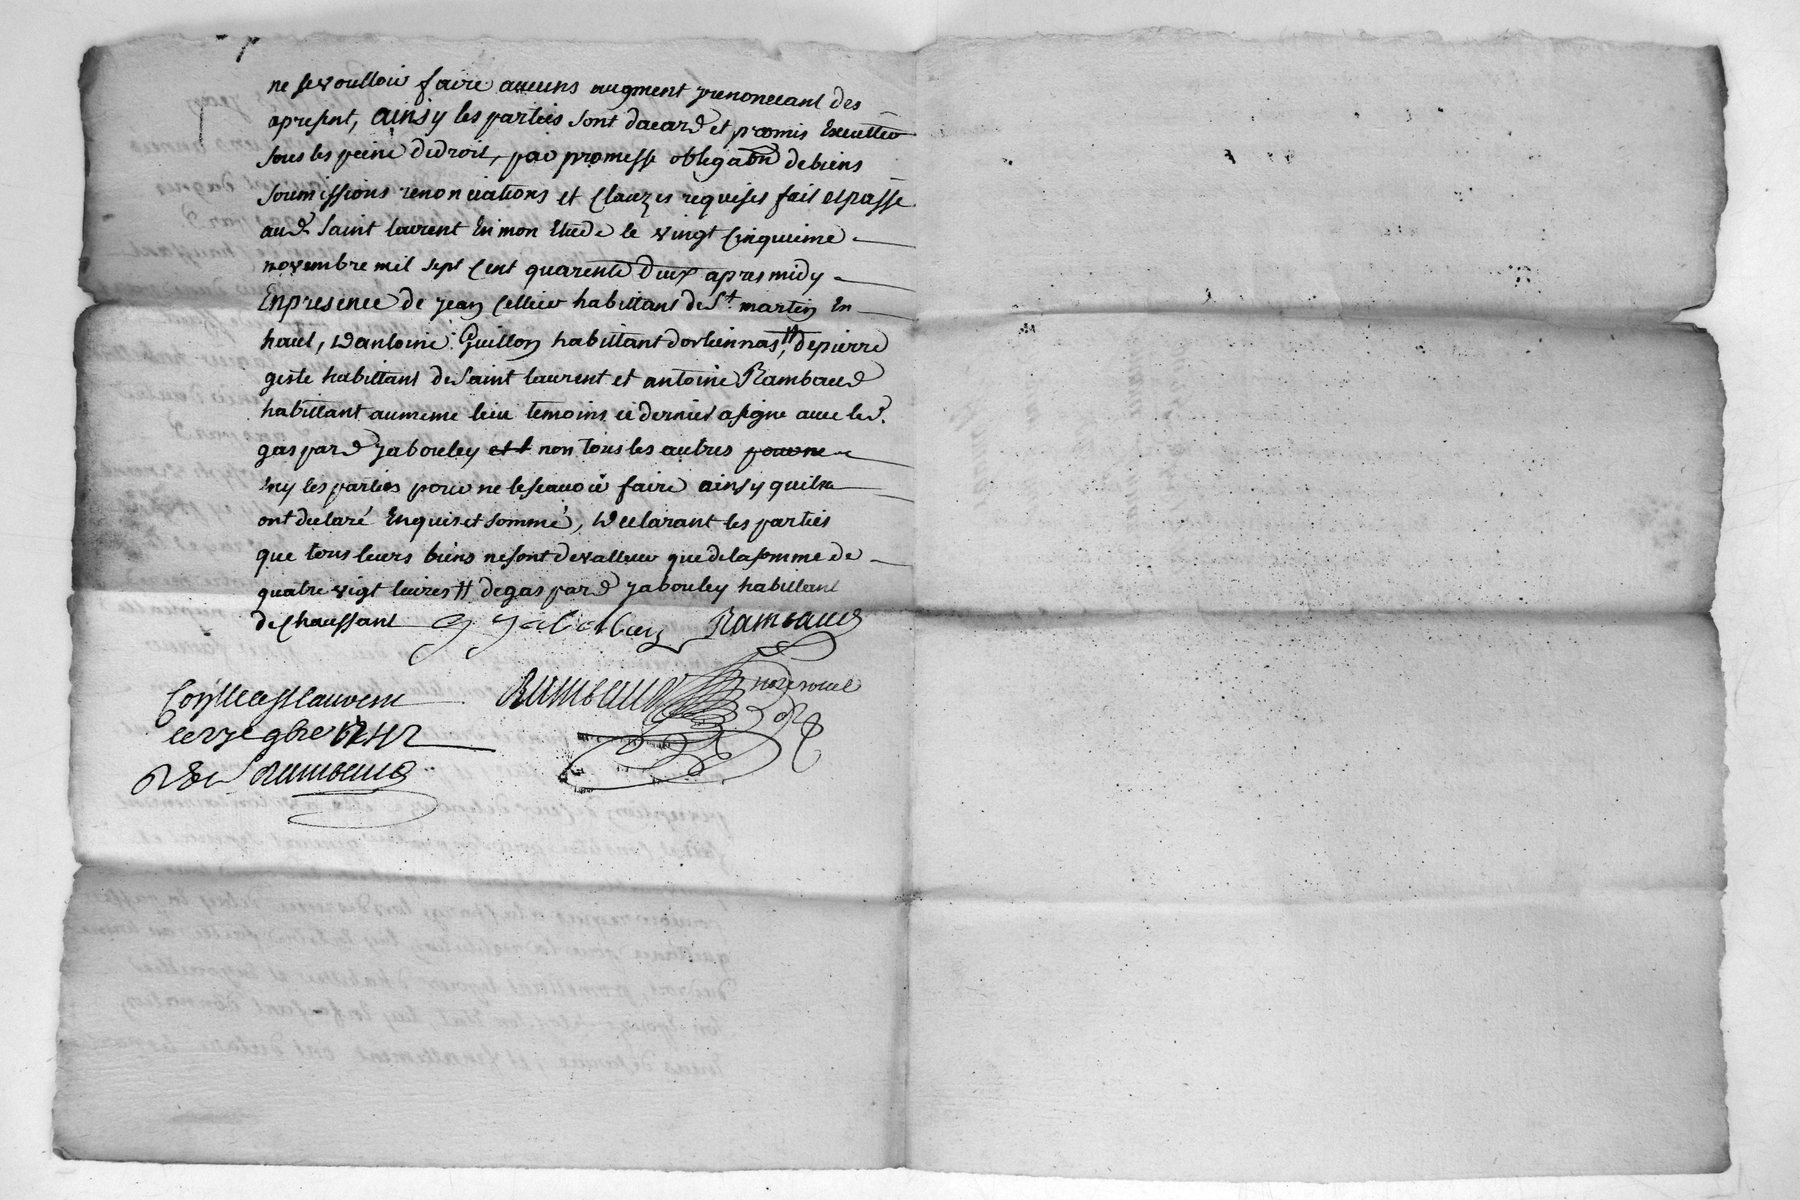 ne se voulloir faire aucuns augment renonceant des
apresent, ainsy les parties sont dacard et promis Executter
sous les peine de droit, par promesse obligaon de biens
soumissions renonciations et Clauzes requises fait et passé
aud. Saint laurent En mon Etude le vingt Cinquieme
novembre mil sept Cent quarente deux apres midy
En presence de jean Cellier habittans de St. martin En
haut, d'antoine Guillon habittant dorliennas, # de pierre
geste habittant de Saint laurent et antoine Rambaud
habittant au meme lieu temoins ce dernier a signe avec led.
gaspard jabouley et t non tous les autres pour ne
ny les parties pour ne le scavoir faire ainsy quils
ont declaré Enquis et sommé, declarant les parties
que tous leurs biens ne sont de valleur que de la somme de
quatre vigt livres # de gaspard jabouley habittant
de Chaussant g jabouley Rambaud
Rambaud nore royal
Conlle a St Laurent
le 9bre 1742
Rambaud